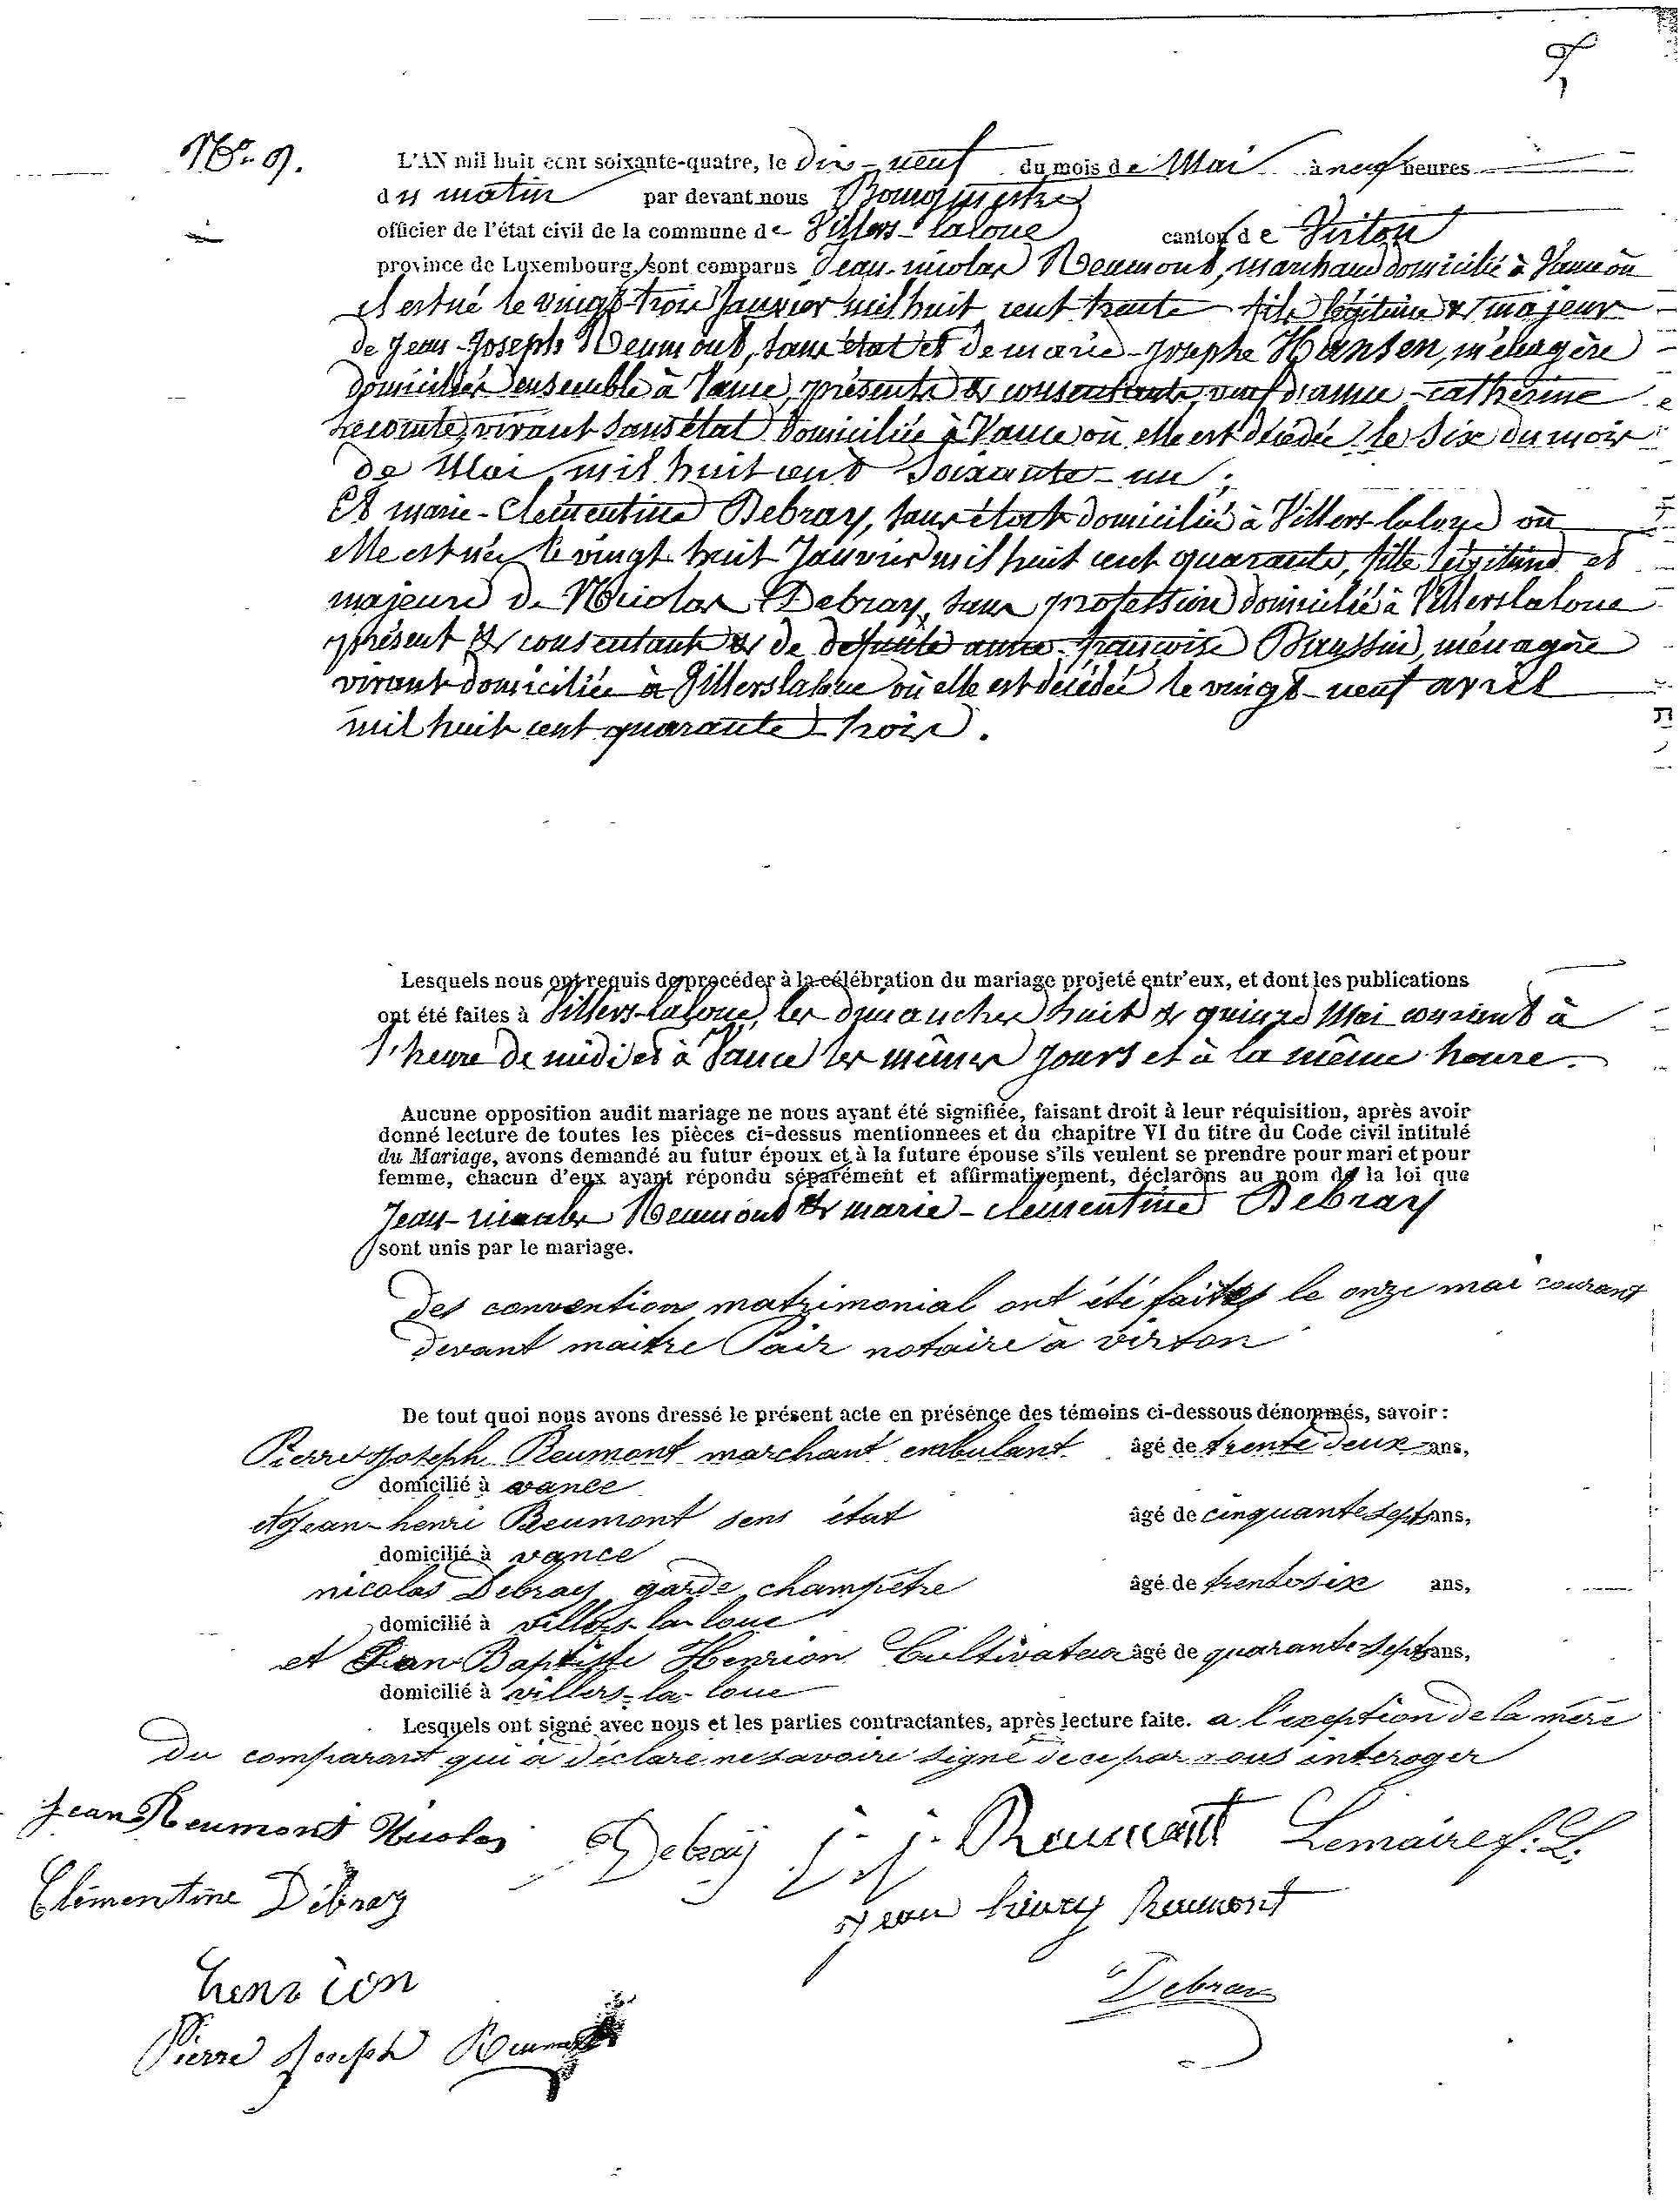 N° 9.
L'AN mil huit cent soixante-quatre, le dix-neuf du mois de Mai à neuf heures
du matin par devant nous Bourgmestre
officier de l'état civil de la commune de Villers-laloue canton de Virton
province de Luxembourg, sont comparus Jean-nicolas Reumont, marchand domicilié à Vance où
il est né le vingt-trois Janvier mil huit cent trente fils légitime et majeur
de Jean-Joseph Reumont, sans état et de marie-josephe Hansen, ménagère
domiciliés ensemble à Vance, présents et consentants, veuf d'anne-catherine
Lecomte, vivant sans état domiciliée à Vance où elle est décédée le six du mois
de Mai mil huit cent soixante-un ;
Et marie-Clémentine Debray, sans état domiciliée à Villers-laloue où
elle est née le vingt huit Janvier mil huit cent quarante, fille légitime et
majeure de Nicolas Debray, sans profession domicilié à Villerslaloue
présent et consentant et de défunte anne-françoise Buyssin, ménagère
vivant domiciliée à Villerslaloue où elle est décédée le vingt-neuf avril
mil huit cent quarante-trois.
Lesquels nous ont requis de procéder à la célébration du mariage projeté entr'eux, et dont les publications
ont été faites à Villers-laloue, les dimanches huit et quinze Mai courant à
l'heure de midi et à Vance les mêmes jours et à la même heure.
Aucune opposition audit mariage ne nous ayant été signifiée, faisant droit à leur réquisition, après avoir
donné lecture de toutes les pièces ci-dessus mentionnees et du chapitre VI du titre du Code civil intitulé
du Mariage, avons demandé au futur époux et à la future épouse s'ils veulent se prendre pour mari et pour
femme, chacun d'eux ayant répondu séparément et affirmativement, déclarons au nom de la loi que
Jean-nicolas Reumont et marie-clementine Debray
sont unis par le mariage.
Des convention matrimonial ont été faites le onze mai courant
devant maitre notaire à virton
De tout quoi nous avons dressé le présent acte en présence des témoins ci-dessous dénommés, savoir :
Pierre joseph Reumont marchant embulant âgé de trente deux ans,
domicilié à vance
et jean-henri Reumont sens état âgé de cinquante sept ans,
domicilié à vance
nicolas Debray garde champêtre âgé de trente six ans,
domicilié à villers-la-loue
et Jean Baptiste Henrion Cultivateur âgé de quarante-sept ans,
domicilié à villers-la-loue
Lesquels ont signé avec nous et les parties contractantes, après lecture faite. a l'exeption de la mère
du comparant qui a déclaré ne savoire signé de ce par nous interoger
Jean Reumont Nicolas Debray j. j. Reumont Lemaire
Clémentine Débray
jean henry Reumont
henrion
Debray
Pierre Joseph Reumont